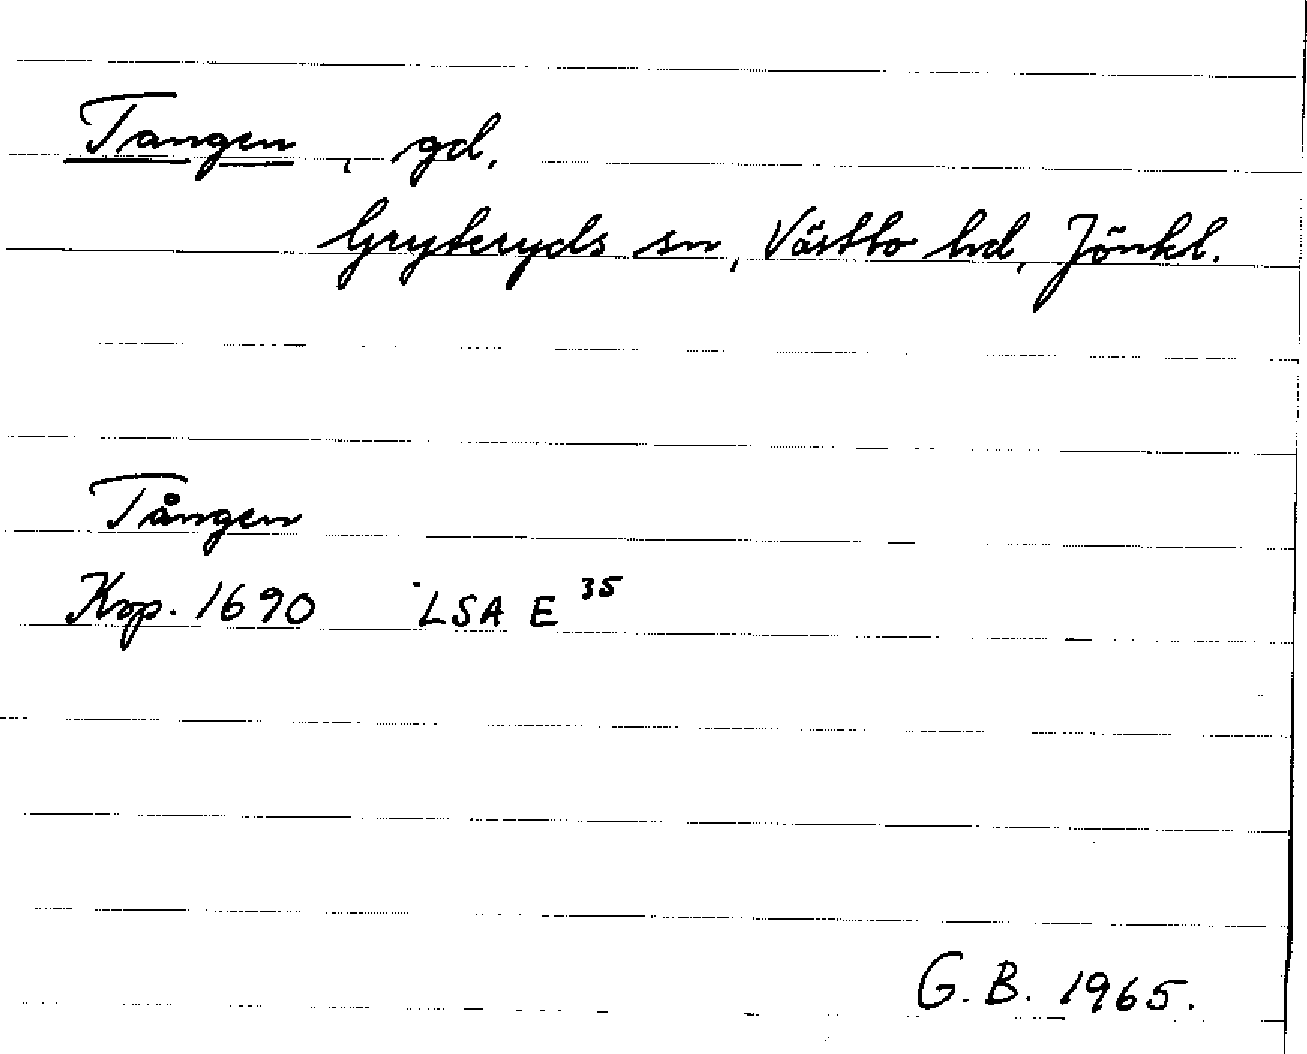 Tangen, gd,
Gryteryds sn, Västbo hd, Jönkl.
Tången
Kop. 1690 LSA E 35
G. B. 1965.